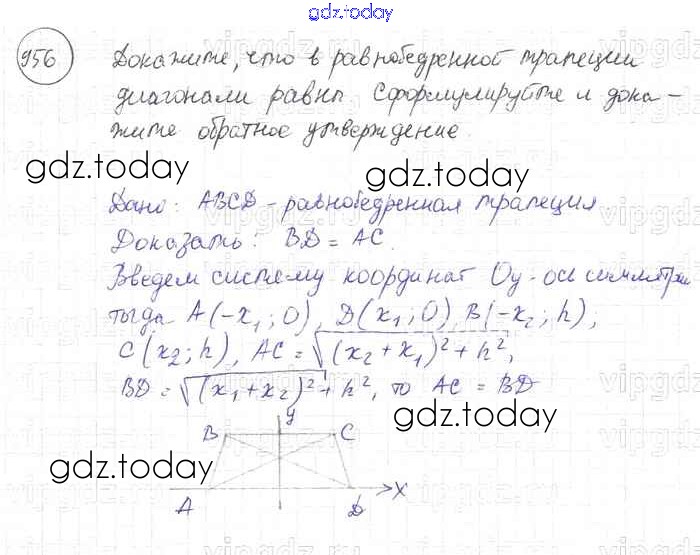 gdz.today
956
Докажите, что в равнобедренной трапеции
диагонали равны. Сформулируйте и дока-
жите обратное утверждение.
gdz.today
gdz.today
Дано: ABCD - равнобедренная трапеция
Доказать: BD = AC.
Введем систему координат Oy - ось симметрии
тогда A(-x₁; 0), D(x₁; 0) B(-x₂; h),
C(x₂; h), AC = √(x₂ + x₁)² + h²,
BD = √(x₁ + x₂)² + h², то AC = BD
gdz.today
y
B C
gdz.today
A D x